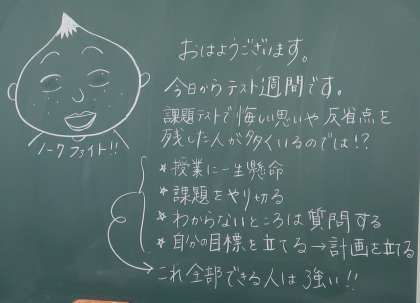 おはようございます。
今日からテスト週間です。
課題テストで悔しい思いや反省点を
残した人が多くいるのでは!?
ノークファイト!!
★授業に一生懸命
★課題をやり切る
★わからないところは質問する
★自分の目標を立てる→計画を立てる
これ全部できる人は強い!!